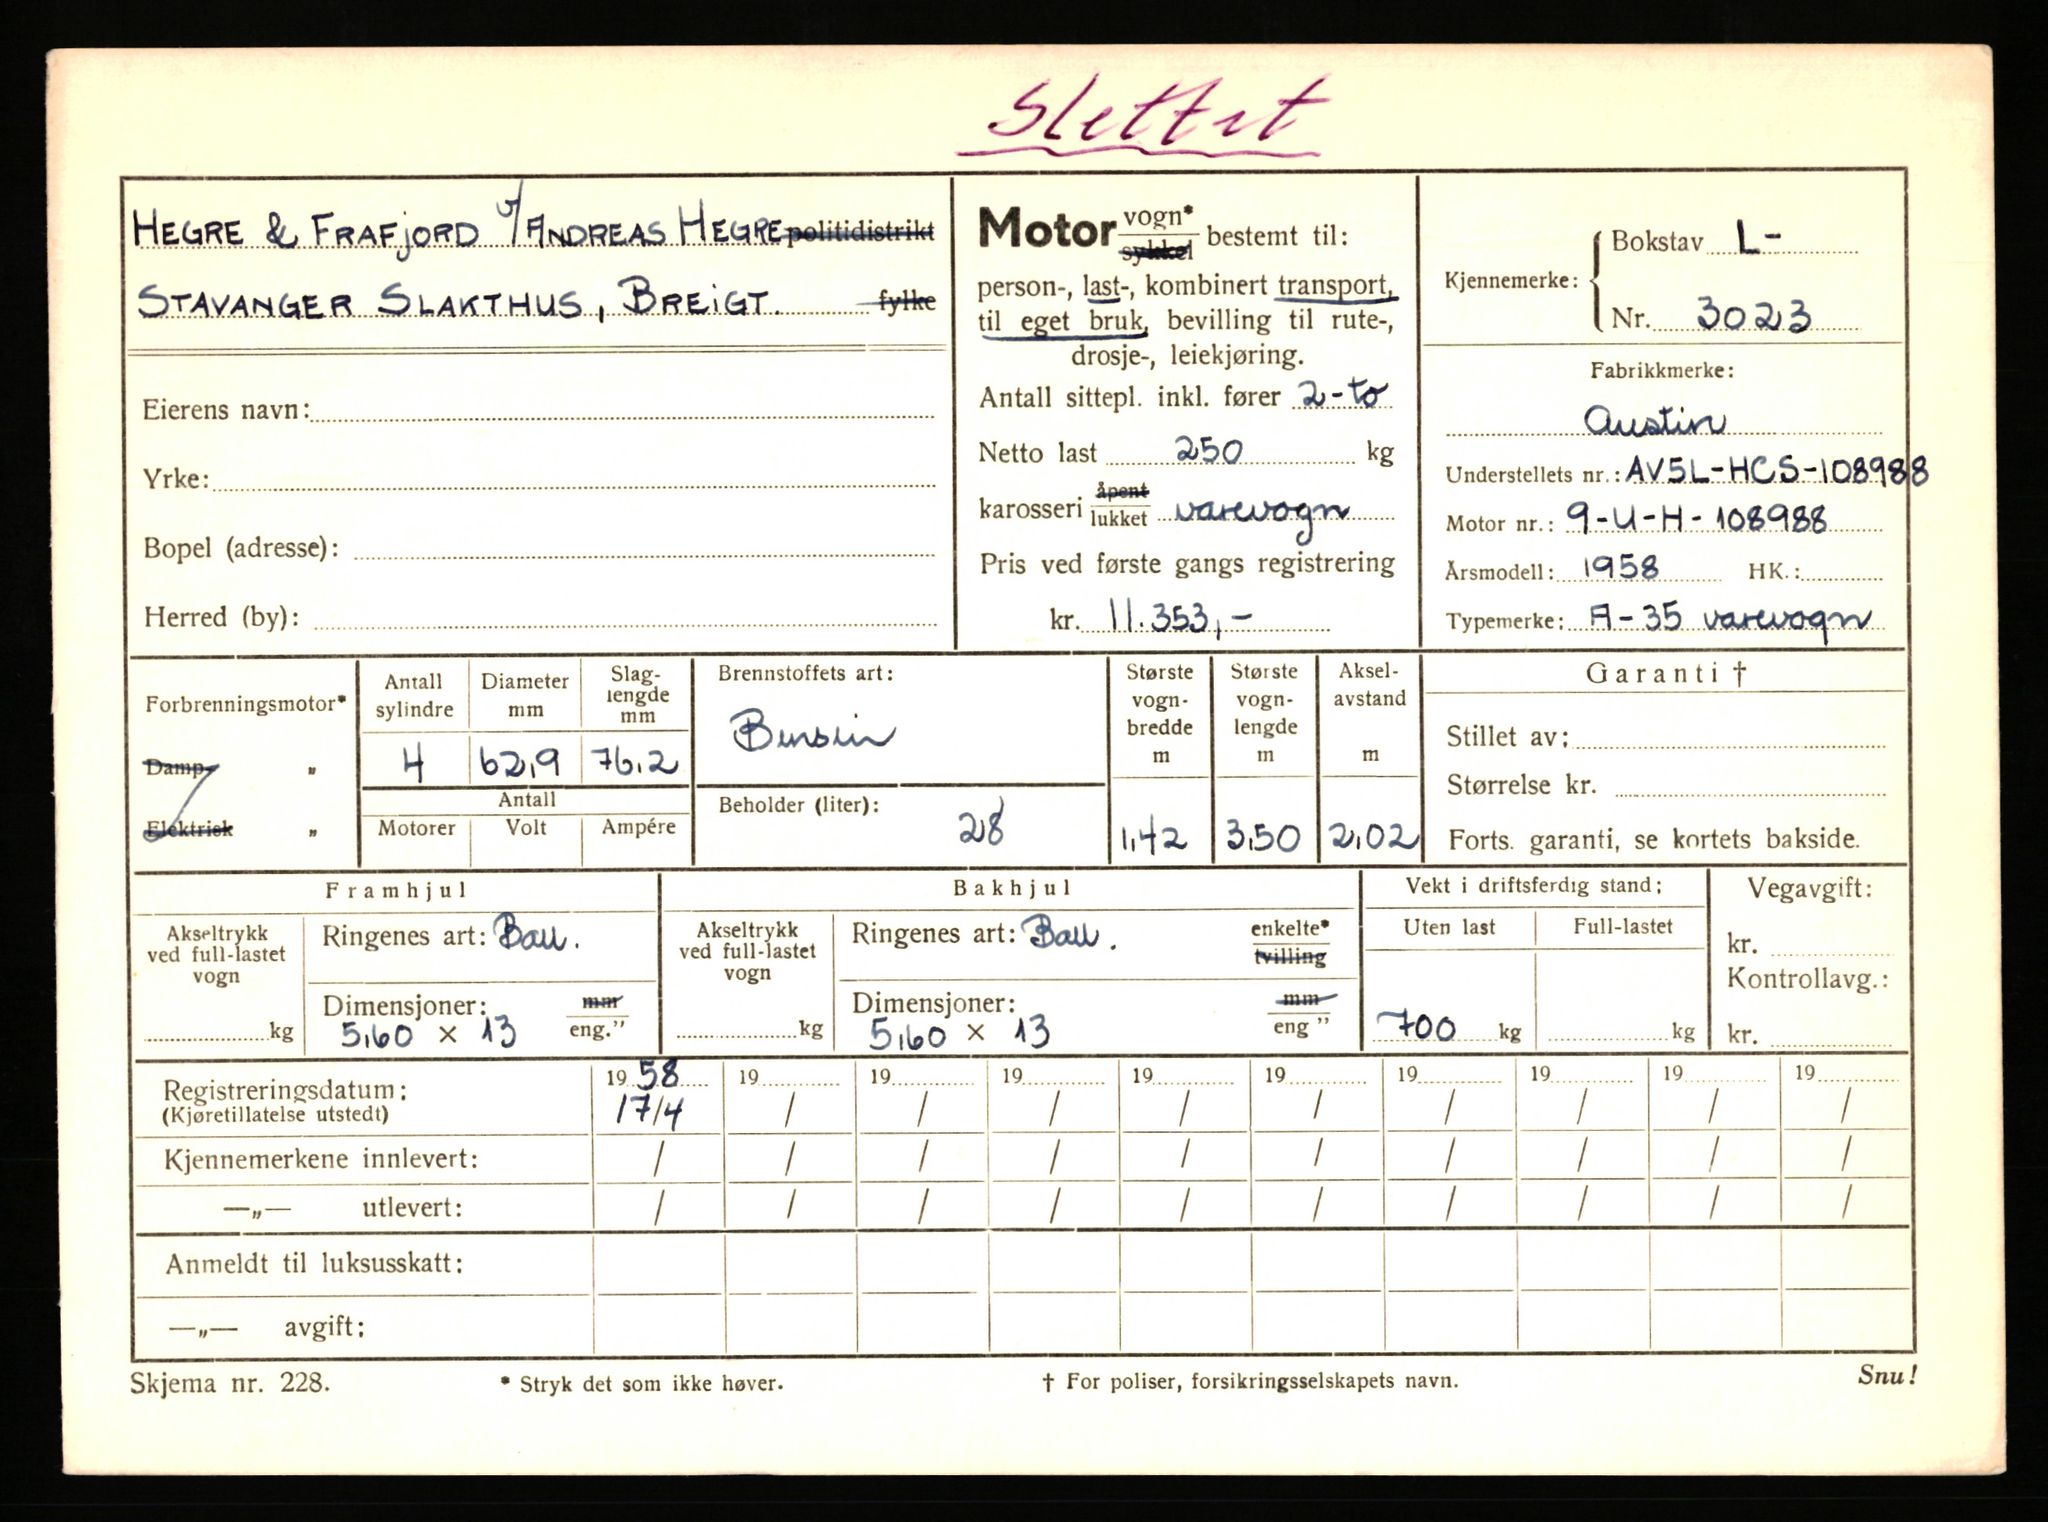 Slettet
HEGRE & FRAFJORD v/ ANDREAS HEGRE politidistrikt
STAVANGER SLAKTHUS, BREIGT. fylke
Eierens navn:
Yrke:
Bopel (adresse):
Herred (by):
Motor vogn* sykkel bestemt til:
person-, last-, kombinert transport,
til eget bruk, bevilling til rute-,
drosje-, leiekjøring.
Antall sittepl. inkl. fører 2-to
Netto last 250 kg
karosseri åpent lukket varevogn
Pris ved første gangs registrering
kr. 11.353,-
Kjennemerke: Bokstav L-
Nr. 3023
Fabrikkmerke:
Austin
Understellets nr.: AV5L-HCS-108988
Motor nr.: 9-U-H-108988
Årsmodell: 1958 HK.:
Typemerke: A-35 varevogn
Forbrenningsmotor*
Damp- „
Elektrisk „
Antall sylindre Diameter mm Slag-lengde mm
4 62,9 76,2
Antall
Motorer Volt Ampére
Brennstoffets art:
Bensin
Beholder (liter):
28
Største vogn-bredde m
1,42
Største vogn-lengde m
3,50
Aksel-avstand m
2,02
Garanti †
Stillet av:
Størrelse kr.
Forts. garanti, se kortets bakside.
Framhjul
Akseltrykk ved full-lastet vogn
kg
Ringenes art: Ball.
Dimensjoner: mm
5,60 × 13 eng.”
Bakhjul
Akseltrykk ved full-lastet vogn
kg
Ringenes art: Ball. enkelte* tvilling
Dimensjoner: mm
5,60 × 13 eng ”
Vekt i driftsferdig stand:
Uten last Full-lastet
700 kg kg
Vegavgift:
kr.
Kontrollavg.:
kr.
Registreringsdatum: 19 58 19 19 19 19 19 19 19 19 19
(Kjøretillatelse utstedt) 17/4 / / / / / / / / /
Kjennemerkene innlevert: / / / / / / / / / /
—„— utlevert: / / / / / / / / / /
Anmeldt til luksusskatt:
—„— avgift:
Skjema nr. 228. * Stryk det som ikke høver. † For poliser, forsikringsselskapets navn. Snu!